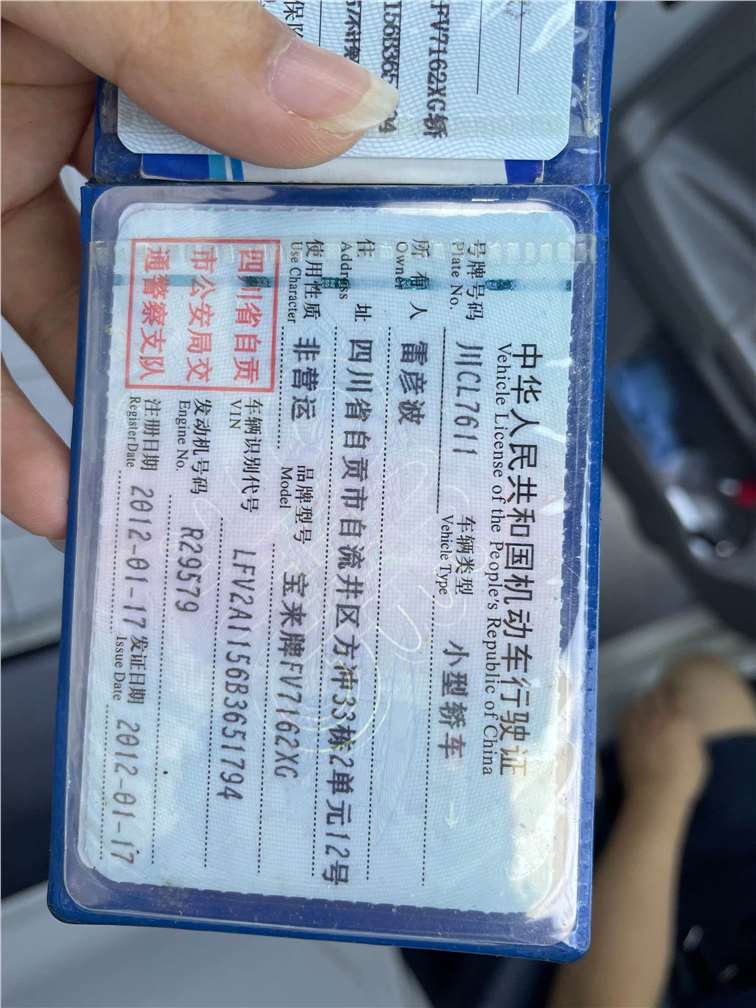 中华人民共和国机动车行驶证
Vehicle License of the People's Republic of China
号牌号码 川CL7611 车辆类型 小型轿车
Plate No. Vehicle Type
所有人 雷彦波
Owner
住址 四川省自贡市自流井区方冲33栋2单元12号
Address
使用性质 非营运 品牌型号 宝来牌FV7162XG
Use Character Model
四川省自贡
市公安局交
通警察支队
车辆识别代号 LFV2A1156B3651794
VIN
发动机号码 R29579
Engine No.
注册日期 2012-01-17 发证日期 2012-01-17
Register Date Issue Date
FV7162XG轿